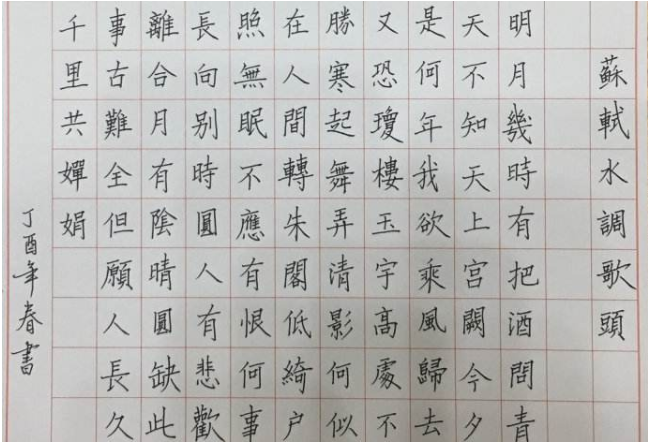 蘇軾水調歌頭
明月幾時有把酒問青
天不知天上宮闕今夕
是何年我欲乘風歸去
又恐瓊樓玉宇高處不
勝寒起舞弄清影何似
在人間轉朱閣低綺户
照無眠不應有恨何事
長向别時圓人有悲歡
離合月有陰晴圓缺此
事古難全但願人長久
千里共嬋娟
丁酉年春書